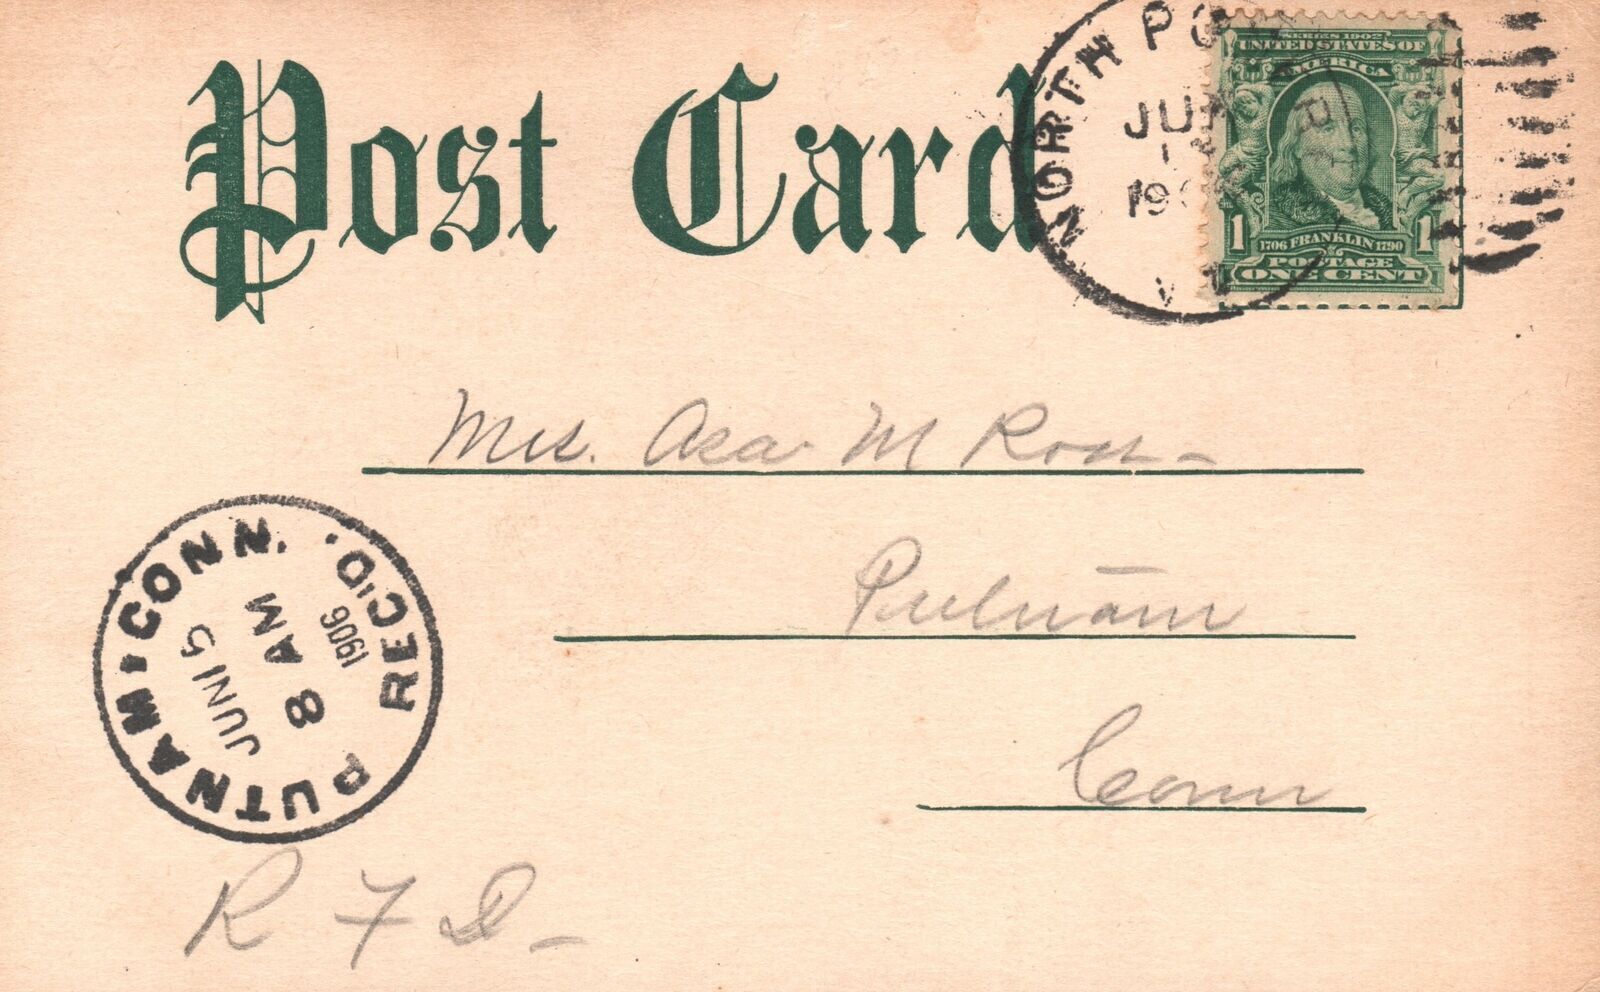 Post Card
NORTH
JUN
SERIES 1902
UNITED STATES OF
AMERICA
1 1706 FRANKLIN 1790 1
POSTAGE
ONE CENT
Mrs. Asa M Ross
Putnam
Conn
PUTNAM. CONN.
REC'D.
JUN 15
8 AM
1906
R F D